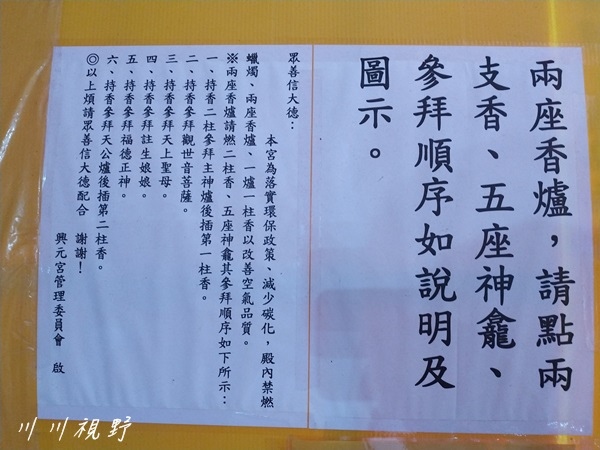 兩座香爐，請點兩
支香、五座神龕、
參拜順序如說明及
圖示。
眾善信大德：
本宮為落實環保政策、減少碳化，殿內禁燃
蠟燭、兩座香爐、一爐一柱香以改善空氣品質。
※兩座香爐請燃二柱香、五座神龕其參拜順序如下所示：
一、持香二柱參拜主神爐後插第一柱香。
二、持香參拜觀世音菩薩。
三、持香參拜天上聖母。
四、持香參拜註生娘娘。
五、持香參拜福德正神。
六、持香參拜天公爐後插第二柱香。
◎以上煩請眾善信大德配合　謝謝！
興元宮管理委員會　啟
川川視野